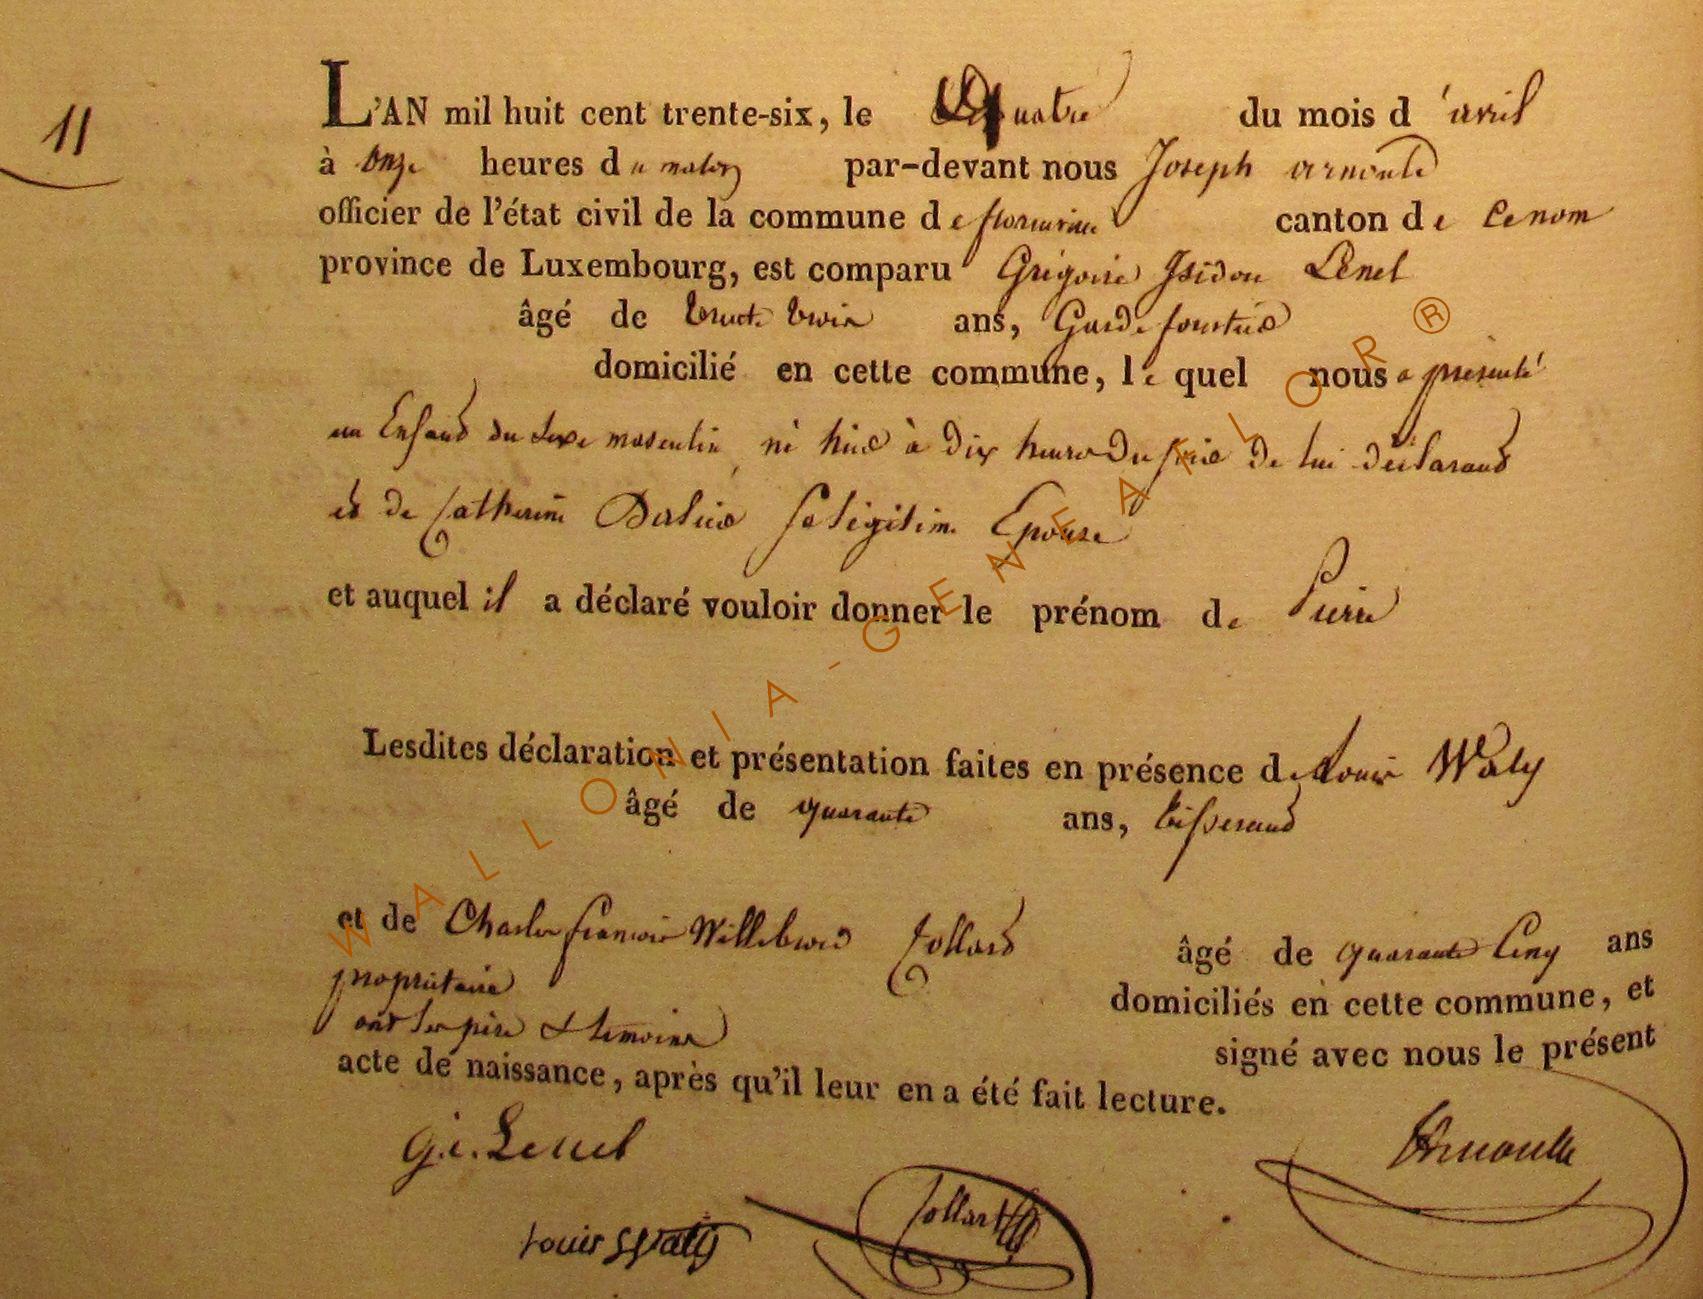 11
L'AN mil huit cent trente-six, le quatre du mois d'avril
à onze heures du matin par-devant nous Joseph arnould
officier de l'état civil de la commune de canton de
province de Luxembourg, est comparu Grégoire Isidore Lenel
âgé de trente trois ans, Garde forestier
domicilié en cette commune, lequel nous a présenté
un Enfant du sexe masculin, né hier à dix heures du soir de lui déclarant
et de Catherine sa légitime Epouse
et auquel il a déclaré vouloir donner le prénom de Pierre
Lesdites déclaration et présentation faites en présence de Louis Waty
âgé de quarante ans, tisserand
et de Charles françois Willebrord Collard âgé de quarante Cinq ans
propriétaire domiciliés en cette commune, et
ont les père & témoins signé avec nous le présent
acte de naissance, après qu'il leur en a été fait lecture.
g.i. Lenel Arnould
Louis Waty Collard
WALLONIA-GENEAFLOR®